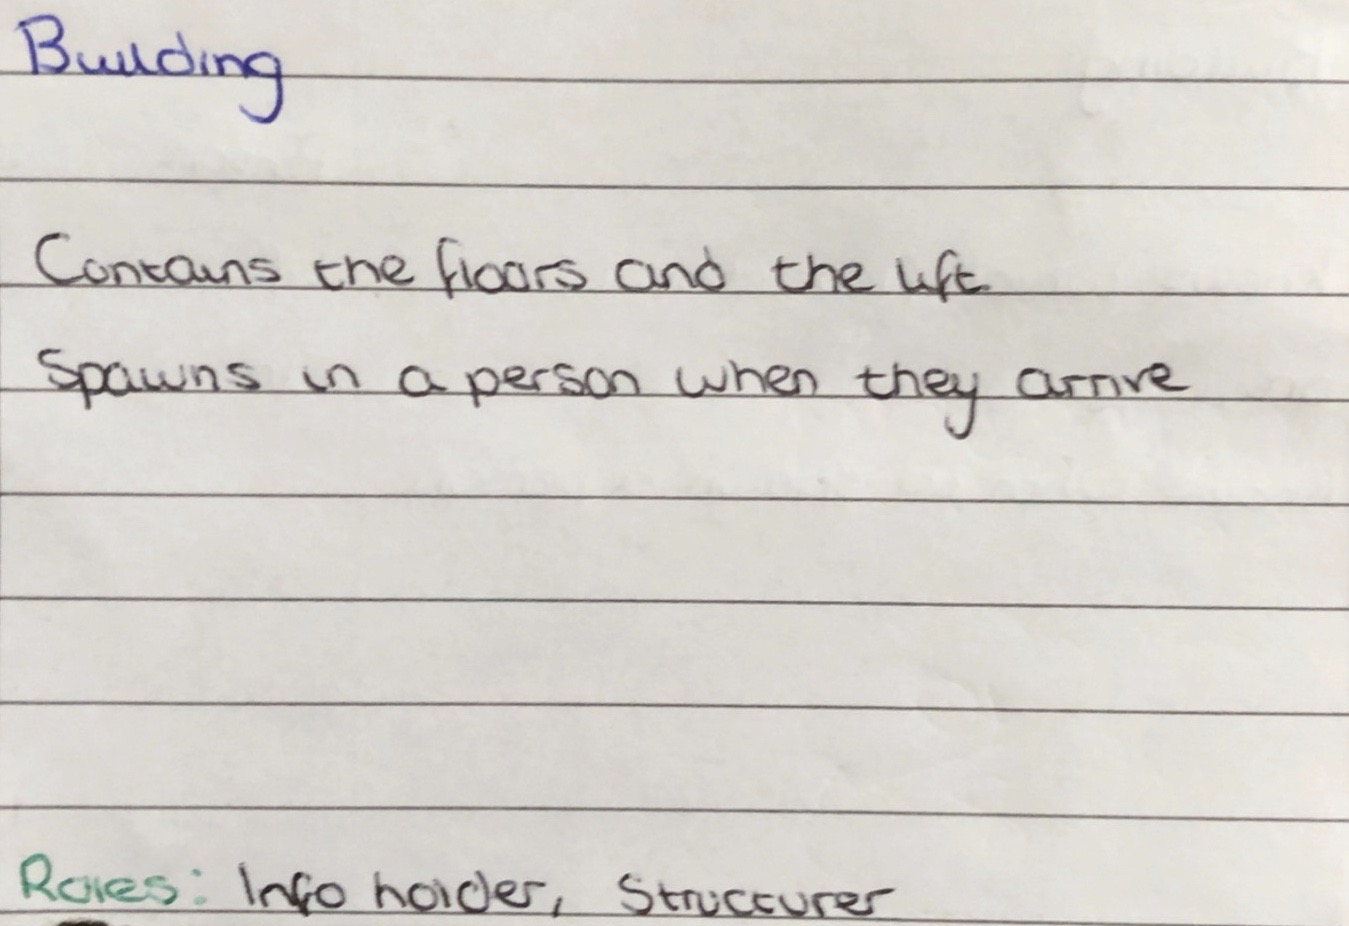 Building
Contains the floors and the lift
Spawns in a person when they arrive
Roles: Info holder, Structurer